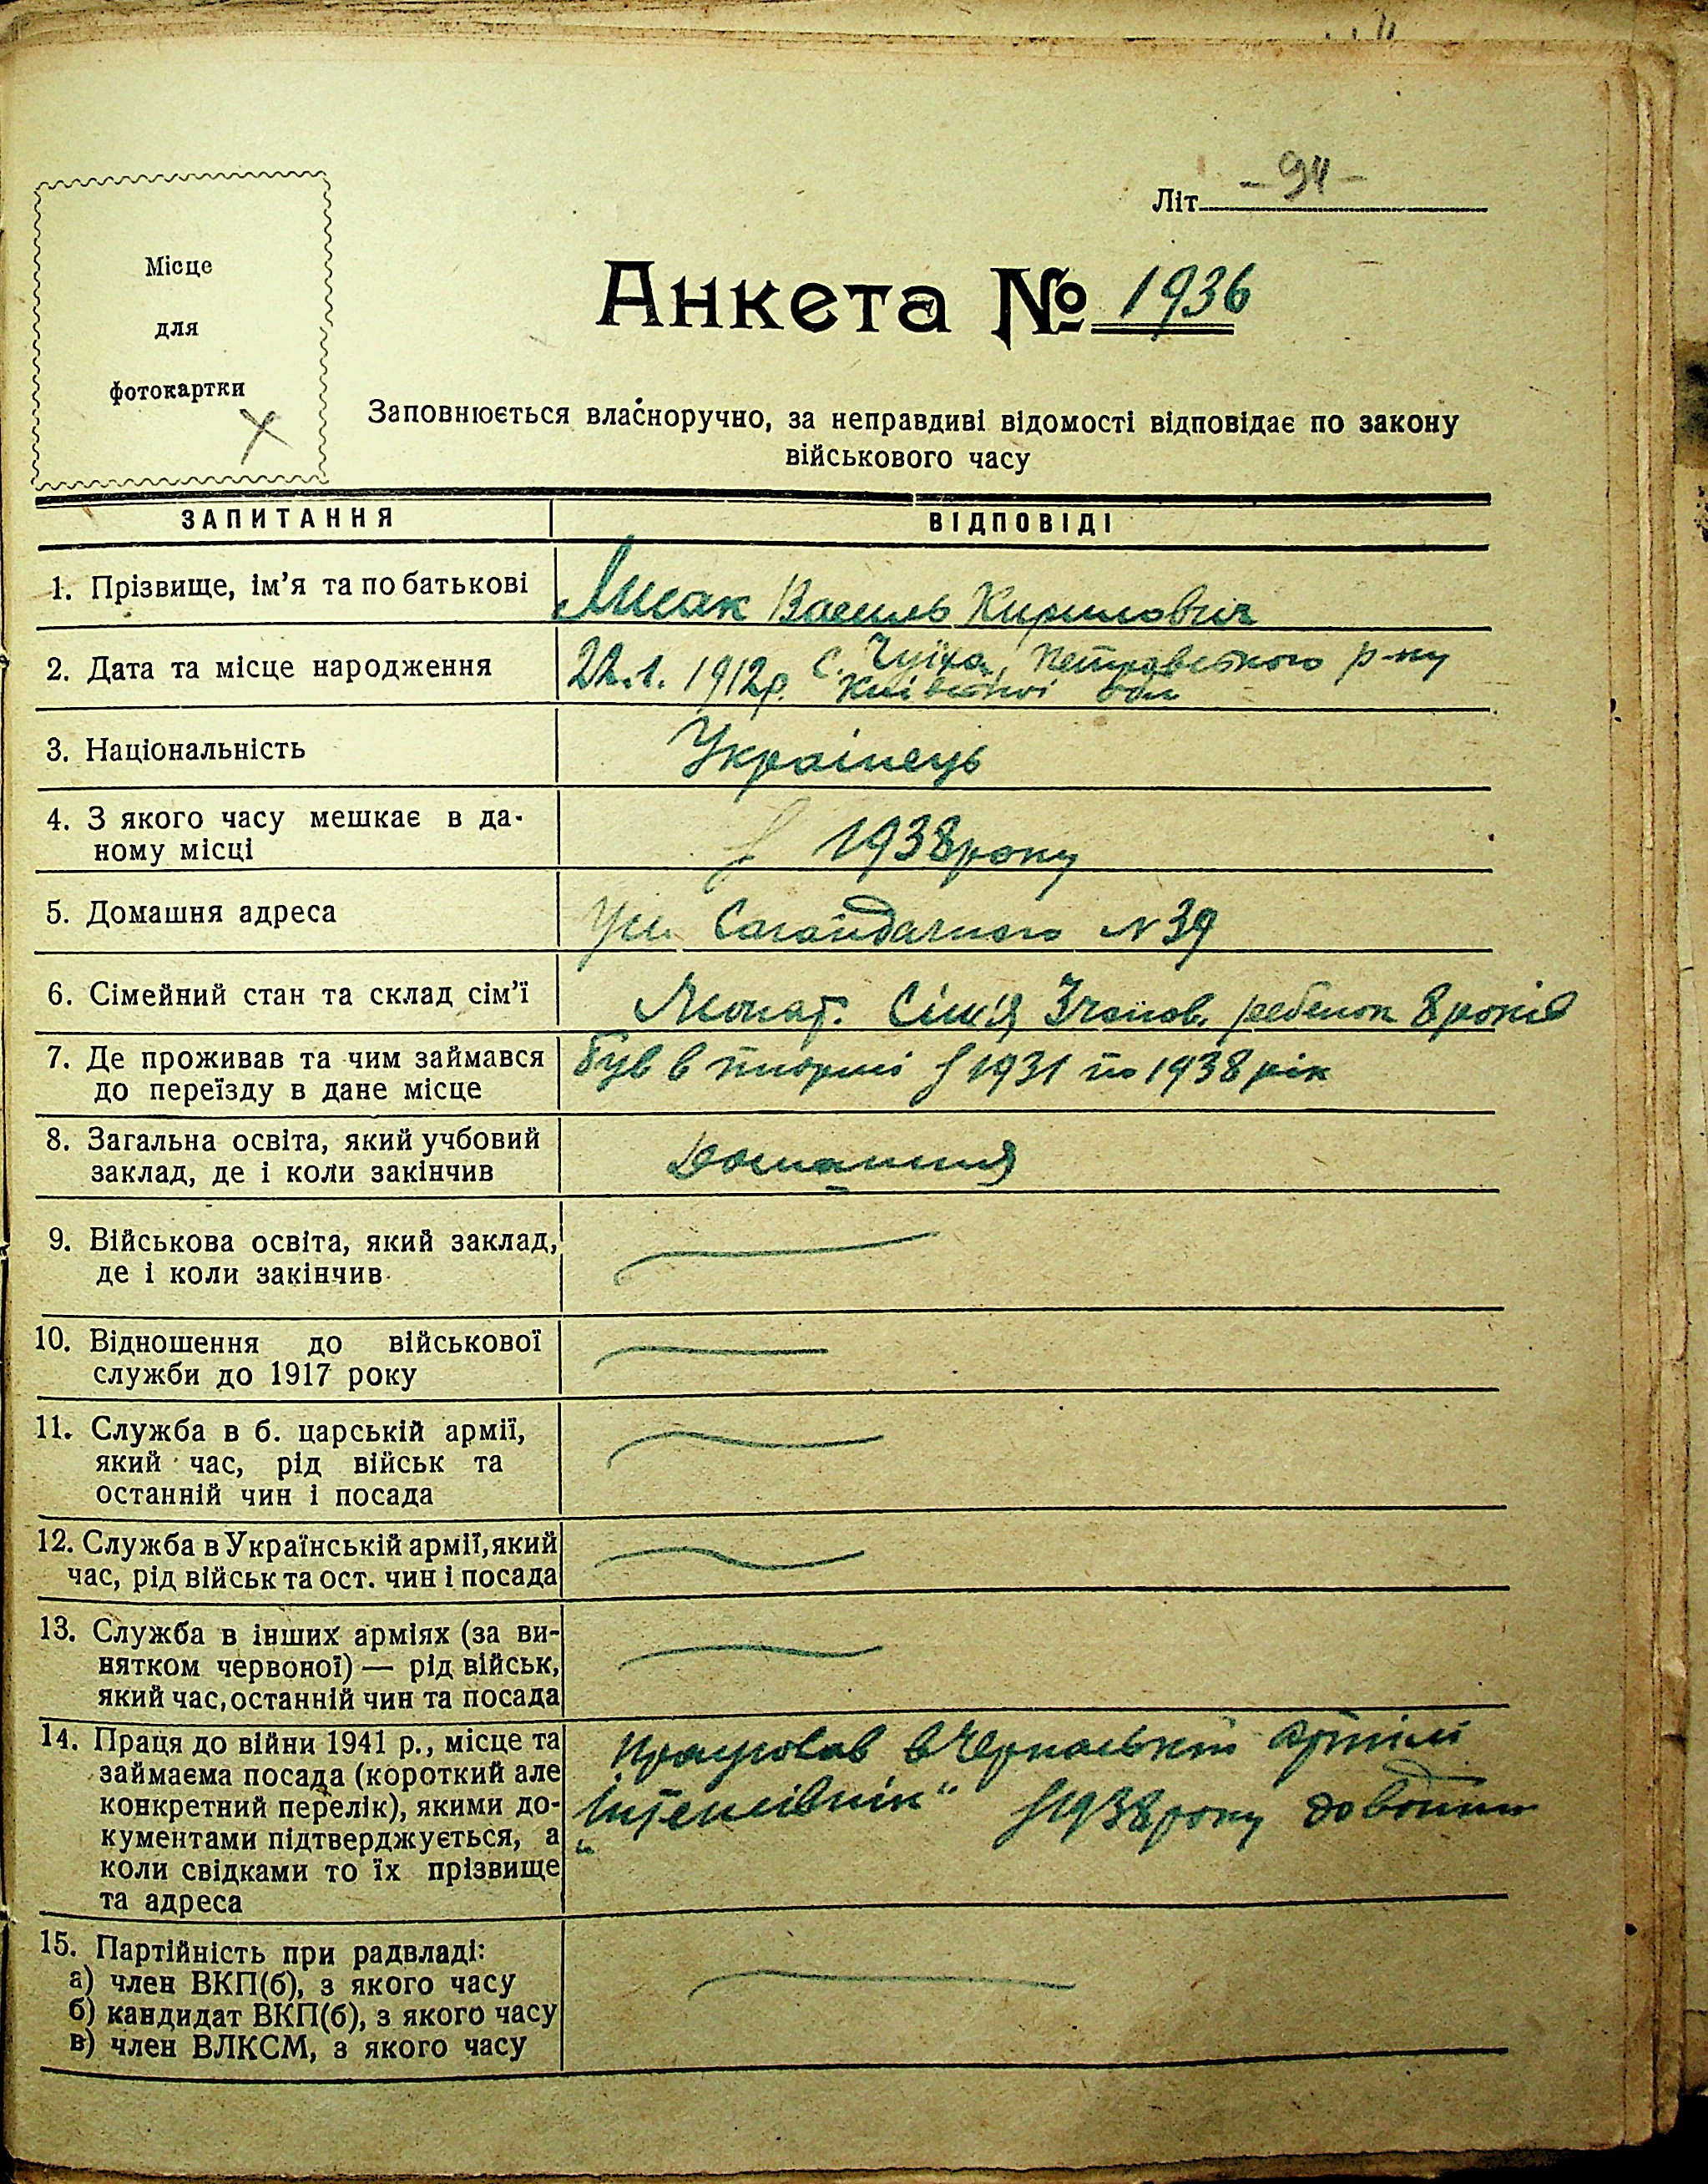 Літ. - 94 -
Місце
для
фотокартки
Анкета № 1936
Заповнюється власноручно, за неправдиві відомості відповідає по закону
військового часу
ЗАПИТАННЯ ВІДПОВІДІ
1. Прізвище, ім'я та по батькові Лисак Василь Кирилович
2. Дата та місце народження 22.1.1912р. с. Петровського р-ну
Київської обл
3. Національність Українець
4. З якого часу мешкає в да-
ному місці з 1938 року
5. Домашня адреса Ул. Сагайдачного N 39
6. Сімейний стан та склад сім'ї Жонат. Сімія 3 чолов. ребенок 8 років
7. Де проживав та чим займався
до переїзду в дане місце був в тюрмі з 1931 по 1938 рік
8. Загальна освіта, який учбовий
заклад, де і коли закінчив Домашня
9. Військова освіта, який заклад,
де і коли закінчив
10. Відношення до військової
служби до 1917 року
11. Служба в б. царській армії,
який час, рід військ та
останній чин і посада
12. Служба в Українській армії, який
час, рід військ та ост. чин і посада
13. Служба в інших арміях (за ви-
нятком червоної) — рід військ,
який час, останній чин та посада
14. Праця до війни 1941 р., місце та
займаєма посада (короткий але
конкретний перелік), якими до-
кументами підтверджується, а
коли свідками то їх прізвище
та адреса
Працював в Черкаській артілі
„Інтенсівнік" з 1938 року до войни
15. Партійність при радвладі:
а) член ВКП(б), з якого часу
б) кандидат ВКП(б), з якого часу
в) член ВЛКСМ, з якого часу